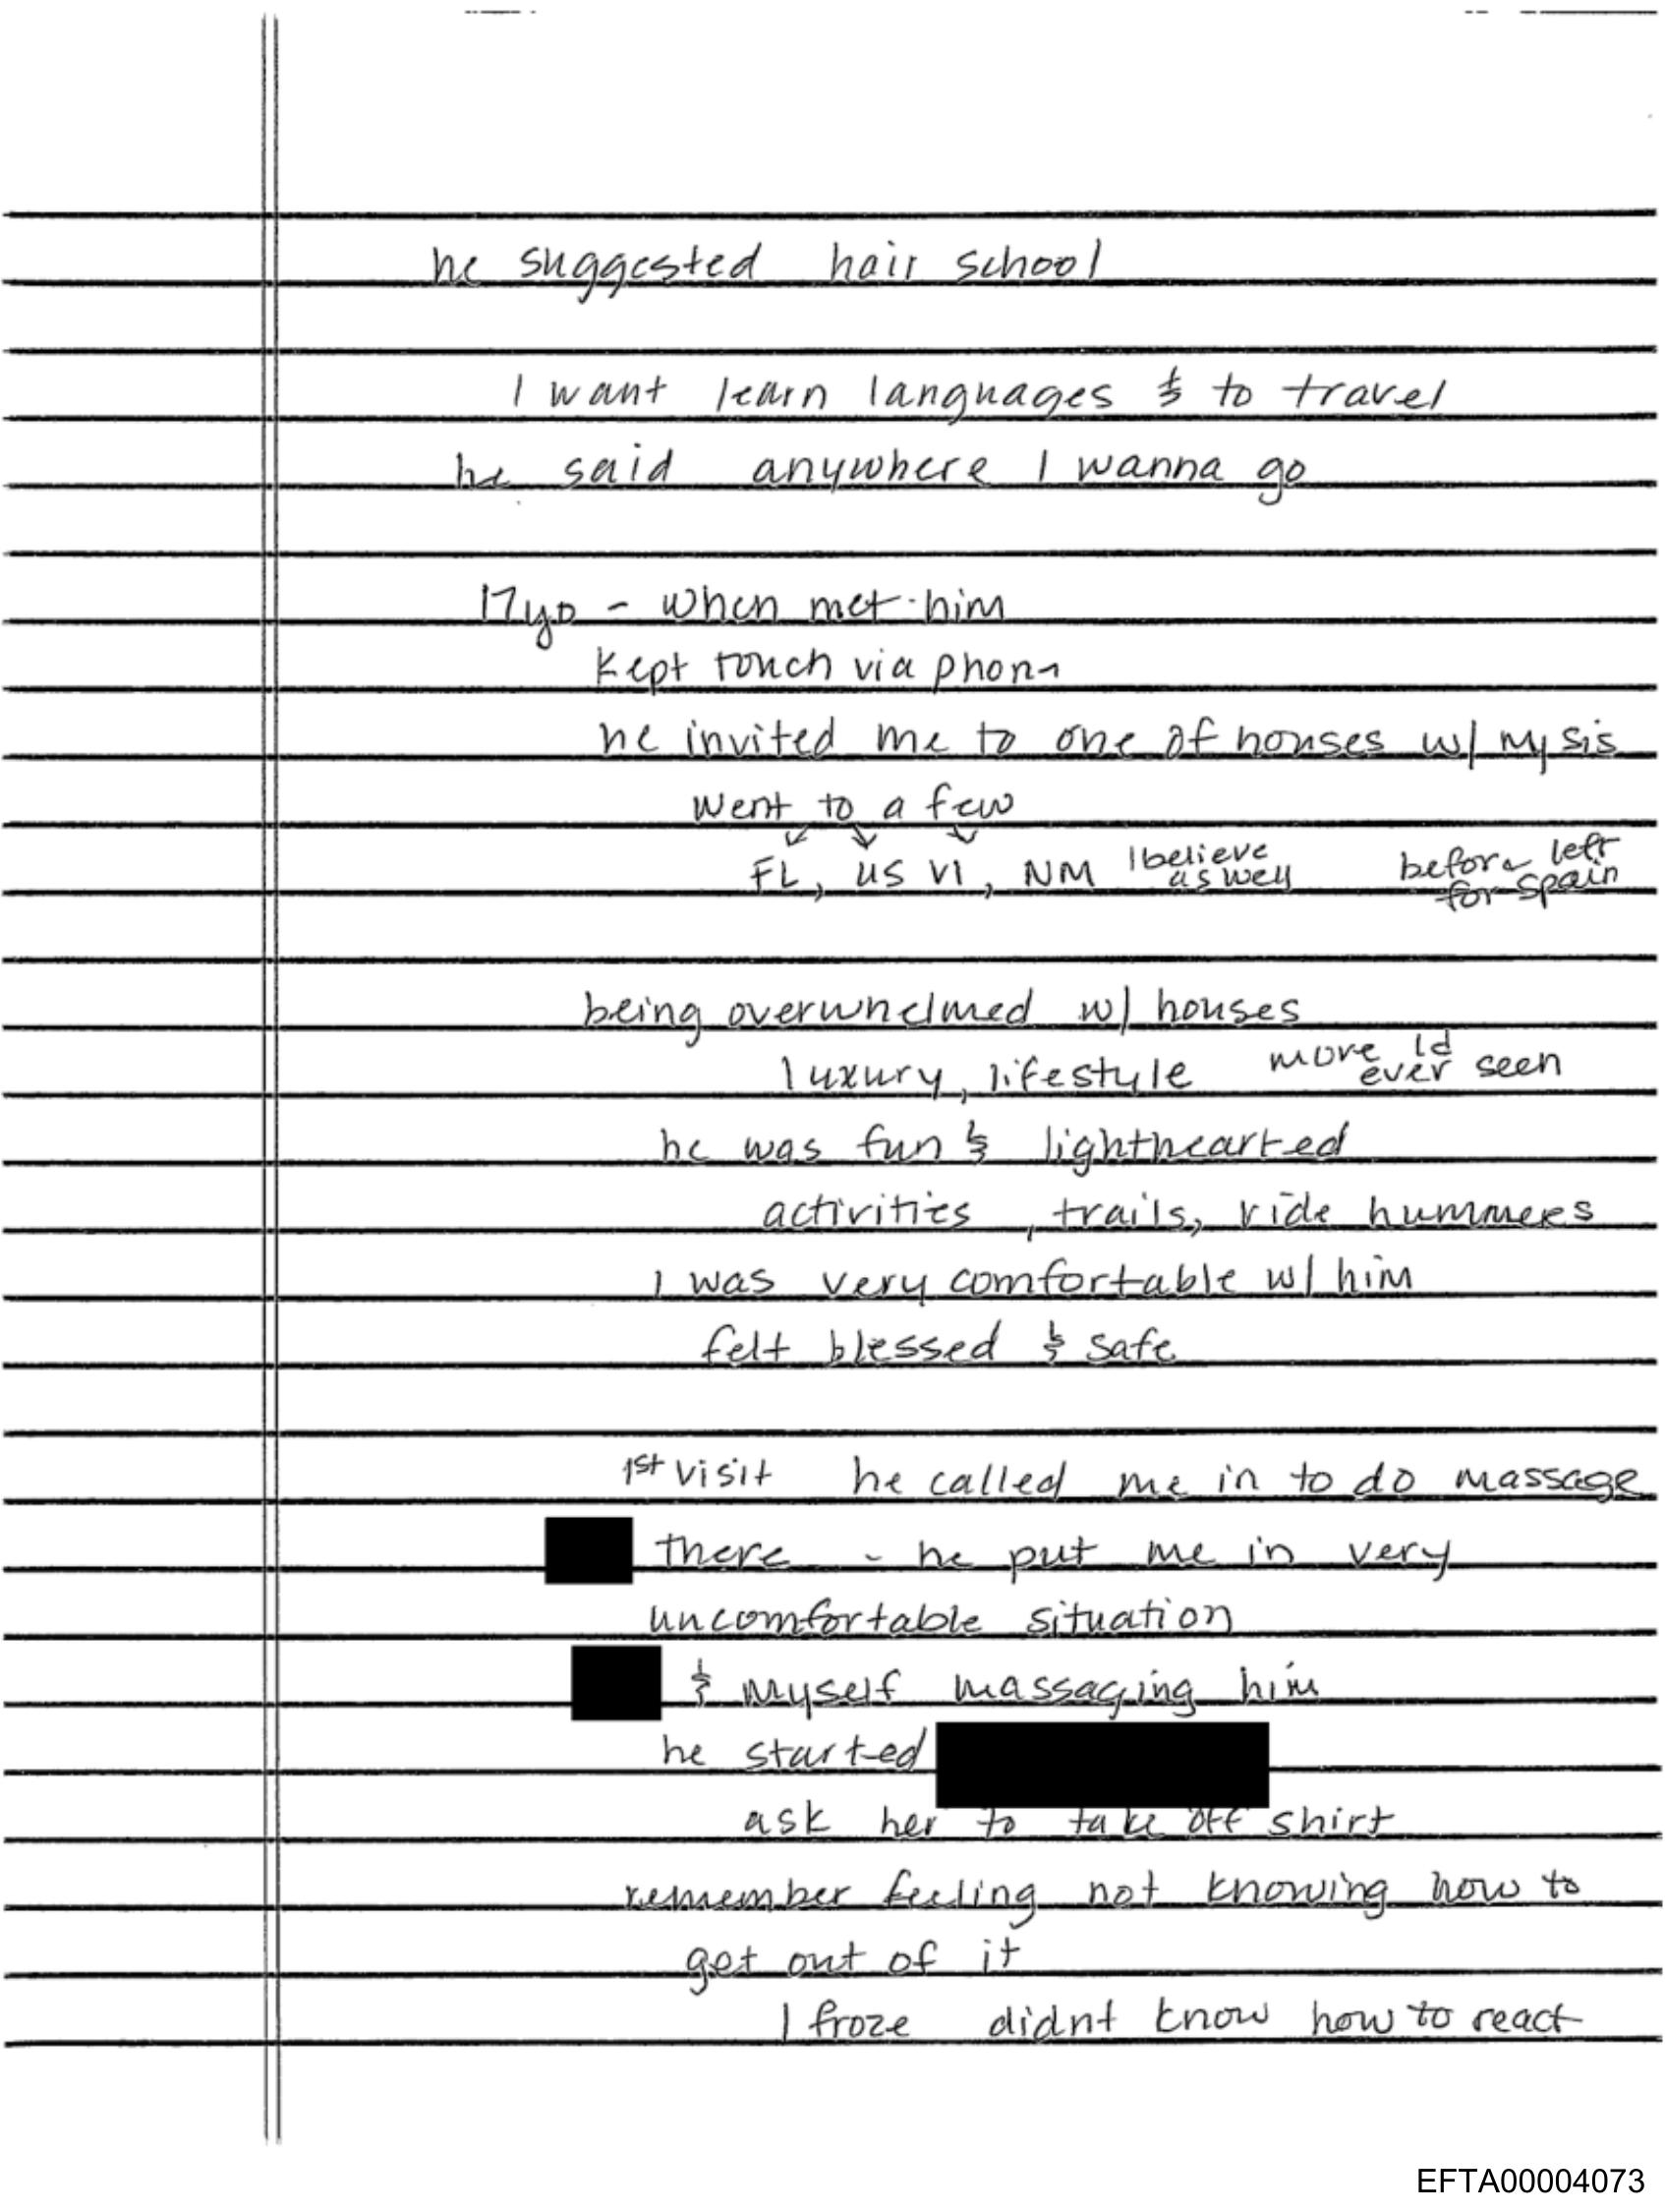 he suggested hair school
I want learn languages & to travel
he said anywhere I wanna go
17yo - when met him
Kept touch via phone
he invited me to one of houses w/ my sis
went to a few
FL, US VI, NM I believe as well before left for spain
being overwhelmed w/ houses
luxury, lifestyle more Id ever seen
he was fun & lighthearted
activities, trails, ride hummers
I was very comfortable w/ him
felt blessed & safe
1st visit he called me in to do massage
there - he put me in very
uncomfortable situation
& myself massaging him
he started
ask her to take off shirt
remember feeling not knowing how to
get out of it
I froze didnt know how to react
EFTA00004073